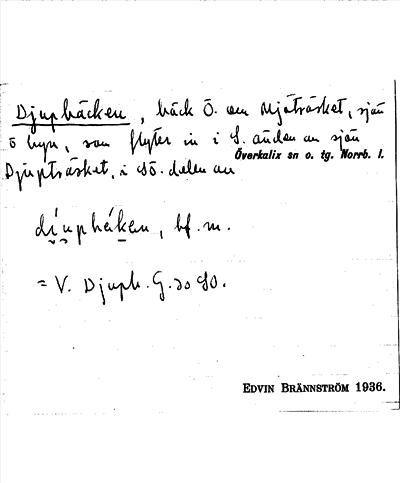 Djupbäcken, bäck Ö. om Mjöträsket, sjön
ö byn, som flyter in i S. ändan av sjön
Djupträsket, i sö. delen av
Överkalix sn o. tg. Norrb. l.
bf. m.
= V. Djupb. G. 20 SO.
EDVIN BRÄNNSTRÖM 1936.